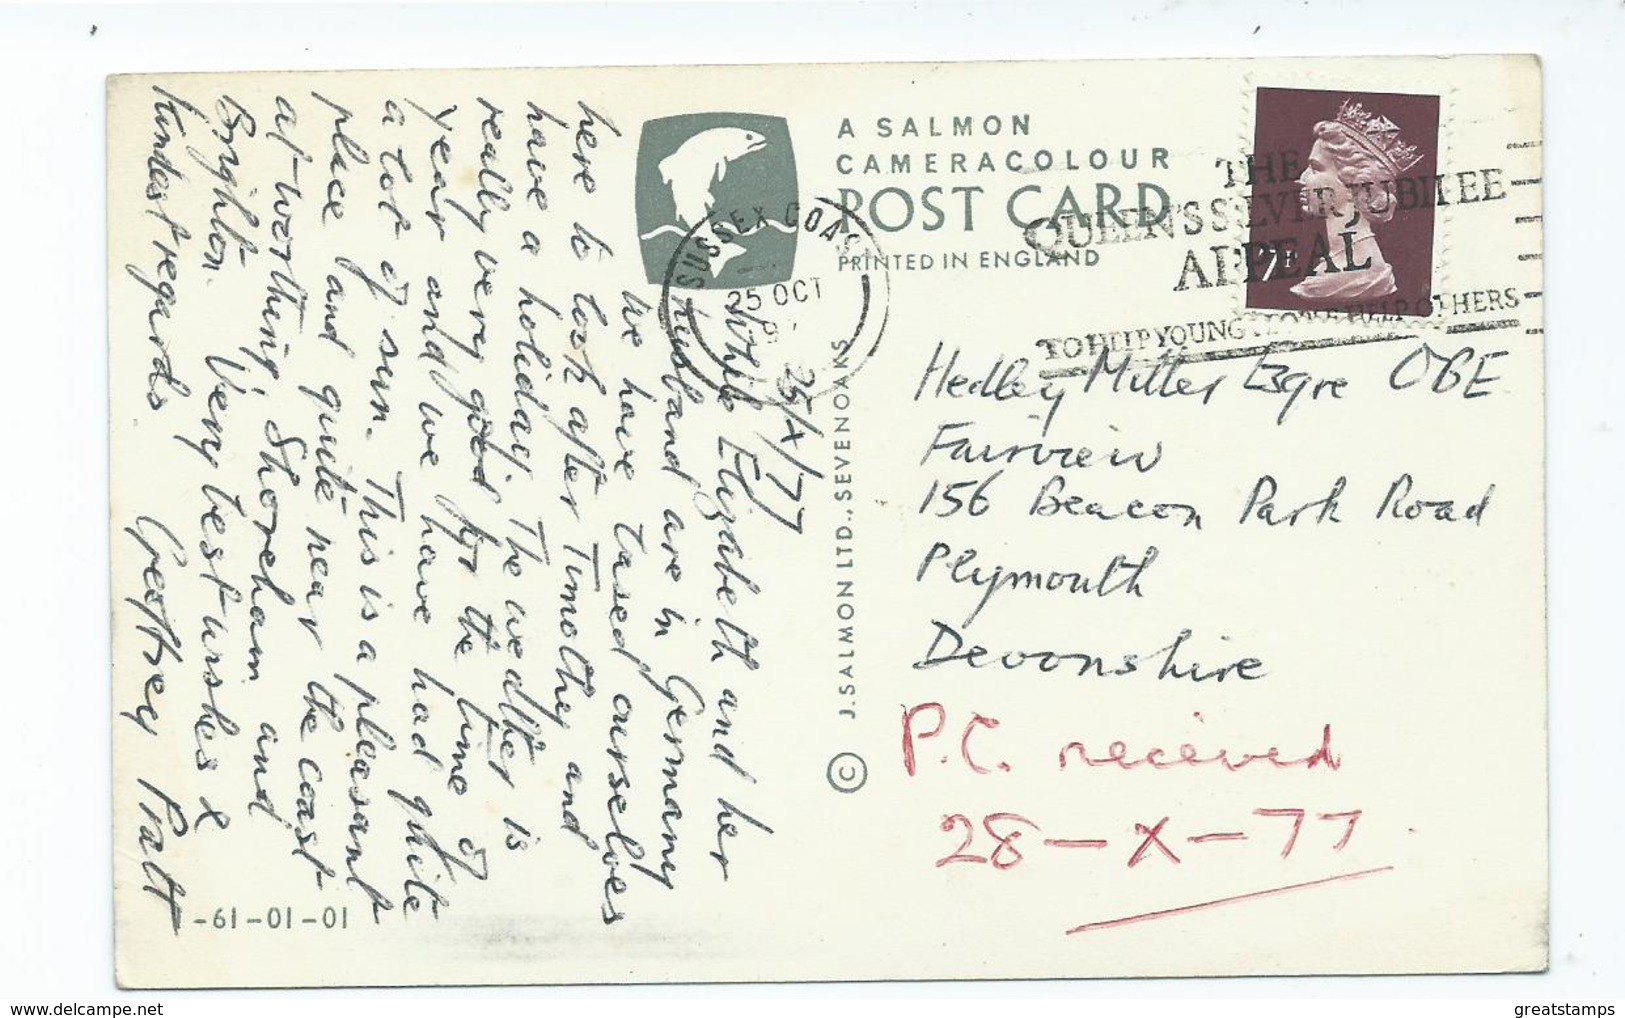 A SALMON
CAMERACOLOUR
POST CARD
PRINTED IN ENGLAND
SUSSEX COAST
25 OCT
THE
QUEEN'S SILVER JUBILEE
APPEAL
TO HELP YOUNG PEOPLE HELP OTHERS
7P
25/X/77
While Elizabeth and her
husband are in Germany
we have based ourselves
here to look after Timothy and
have a holiday. The weather is
really very good for the time of
year and we have had quite
a lot of sun. This is a pleasant
place and quite near the coast
at Worthing, Shoreham and
Brighton. Very best wishes &
Kindest regards. Geoffrey Pratt
-61-01-01
© J. SALMON LTD., SEVENOAKS
Hedley Miller Esqre OBE
Fairview
156 Beacon Park Road
Plymouth
Devonshire
P.C. received
28-X-77.
greatstamps